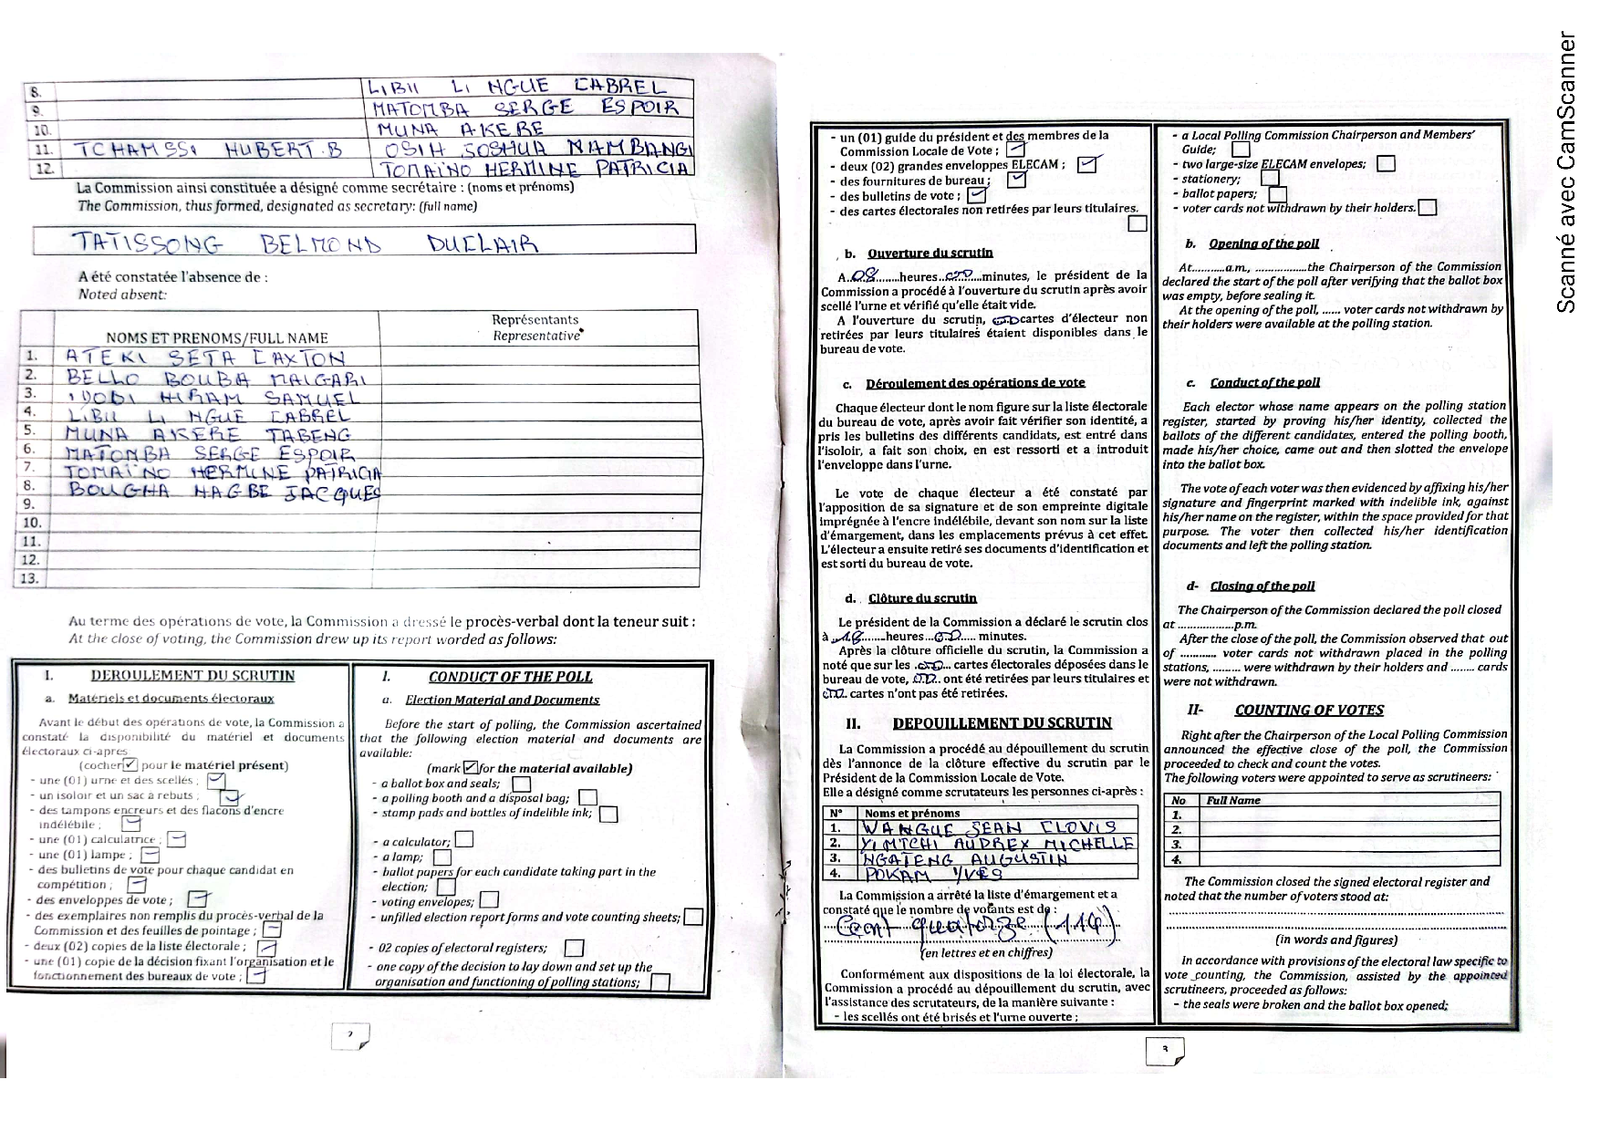 8. LIBII LI NGUE CABREL
9. MATOMBA SERGE ESPOIR
10. MUNA AKERE
11. TCHAMSSI HUBERT.B OSIH JOSHUA NAMBANGI
12. TOMAÏNO HERMINE PATRICIA
La Commission ainsi constituée a désigné comme secrétaire : (noms et prénoms)
The Commission, thus formed, designated as secretary: (full name)
TATISSONG BELMOND DUCLAIR
A été constatée l'absence de :
Noted absent:
NOMS ET PRENOMS/FULL NAME
Représentants
Representative
1. ATEKI SETA CAXTON
2. BELLO BOUBA MAIGARI
3. HIRAM SAMUEL
4. LIBII LI NGUE CABREL
5. MUNA AKERE TABENG
6. MATOMBA SERGE ESPOIR
7. TOMAÏNO HERMINE PATRICIA
8. BOUGHA HAGBE JACQUES
9.
10.
11.
12.
13.
Au terme des opérations de vote, la Commission a dressé le procès-verbal dont la teneur suit :
At the close of voting, the Commission drew up its report worded as follows:
I. DEROULEMENT DU SCRUTIN
a. Matériels et documents électoraux
Avant le début des opérations de vote, la Commission a
constaté la disponibilité du matériel et documents
électoraux ci-apres
(cocher pour le matériel présent)
- une (01) urne et des scellés ;
- un isoloir et un sac à rebuts ;
- des tampons encreurs et des flacons d'encre
indélébile ;
- une (01) calculatrice ;
- une (01) lampe ;
- des bulletins de vote pour chaque candidat en
compétition ;
- des enveloppes de vote ;
- des exemplaires non remplis du procès-verbal de la
Commission et des feuilles de pointage ;
- deux (02) copies de la liste électorale ;
- une (01) copie de la décision fixant l'organisation et le
fonctionnement des bureaux de vote ;
I. CONDUCT OF THE POLL
a. Election Material and Documents
Before the start of polling, the Commission ascertained
that the following election material and documents are
available:
(mark for the material available)
- a ballot box and seals;
- a polling booth and a disposal bag;
- stamp pads and bottles of indelible ink;
- a calculator;
- a lamp;
- ballot papers for each candidate taking part in the
election;
- voting envelopes;
- unfilled election report forms and vote counting sheets;
- 02 copies of electoral registers;
- one copy of the decision to lay down and set up the
organisation and functioning of polling stations;
2
- un (01) guide du président et des membres de la
Commission Locale de Vote ;
- deux (02) grandes enveloppes ELECAM ;
- des fournitures de bureau ;
- des bulletins de vote ;
- des cartes électorales non retirées par leurs titulaires.
b. Ouverture du scrutin
A..08......heures..00....minutes, le président de la
Commission a procédé à l'ouverture du scrutin après avoir
scellé l'urne et vérifié qu'elle était vide.
A l'ouverture du scrutin, cartes d'électeur non
retirées par leurs titulaires étaient disponibles dans le
bureau de vote.
c. Déroulement des opérations de vote
Chaque électeur dont le nom figure sur la liste électorale
du bureau de vote, après avoir fait vérifier son identité, a
pris les bulletins des différents candidats, est entré dans
l'isoloir, a fait son choix, en est ressorti et a introduit
l'enveloppe dans l'urne.
Le vote de chaque électeur a été constaté par
l'apposition de sa signature et de son empreinte digitale
imprégnée à l'encre indélébile, devant son nom sur la liste
d'émargement, dans les emplacements prévus à cet effet.
L'électeur a ensuite retiré ses documents d'identification et
est sorti du bureau de vote.
d. Clôture du scrutin
Le président de la Commission a déclaré le scrutin clos
à ..18.......heures...00..... minutes.
Après la clôture officielle du scrutin, la Commission a
noté que sur les cartes électorales déposées dans le
bureau de vote, ont été retirées par leurs titulaires et
cartes n'ont pas été retirées.
II. DEPOUILLEMENT DU SCRUTIN
La Commission a procédé au dépouillement du scrutin
dès l'annonce de la clôture effective du scrutin par le
Président de la Commission Locale de Vote.
Elle a désigné comme scrutateurs les personnes ci-après :
N° Noms et prénoms
1. WANGUE SEAN CLOVIS
2. YIMTCHI AUDREY MICHELLE
3. NGATENG AUGUSTIN
4. POKAM YVES
La Commission a arrêté la liste d'émargement et a
constaté que le nombre de votants est de :
Cent quatorze (114)
(en lettres et en chiffres)
Conformément aux dispositions de la loi électorale, la
Commission a procédé au dépouillement du scrutin, avec
l'assistance des scrutateurs, de la manière suivante :
- les scellés ont été brisés et l'urne ouverte ;
- a Local Polling Commission Chairperson and Members'
Guide;
- two large-size ELECAM envelopes;
- stationery;
- ballot papers;
- voter cards not withdrawn by their holders.
b. Opening of the poll
At...........a.m., ..................the Chairperson of the Commission
declared the start of the poll after verifying that the ballot box
was empty, before sealing it.
At the opening of the poll, ...... voter cards not withdrawn by
their holders were available at the polling station.
c. Conduct of the poll
Each elector whose name appears on the polling station
register, started by proving his/her identity, collected the
ballots of the different candidates, entered the polling booth,
made his/her choice, came out and then slotted the envelope
into the ballot box.
The vote of each voter was then evidenced by affixing his/her
signature and fingerprint marked with indelible ink, against
his/her name on the register, within the space provided for that
purpose. The voter then collected his/her identification
documents and left the polling station.
d- Closing of the poll
The Chairperson of the Commission declared the poll closed
at ...................p.m.
After the close of the poll, the Commission observed that out
of ............ voter cards not withdrawn placed in the polling
stations, ......... were withdrawn by their holders and ........ cards
were not withdrawn.
II- COUNTING OF VOTES
Right after the Chairperson of the Local Polling Commission
announced the effective close of the poll, the Commission
proceeded to check and count the votes.
The following voters were appointed to serve as scrutineers:
No Full Name
1.
2.
3.
4.
The Commission closed the signed electoral register and
noted that the number of voters stood at:
(in words and figures)
In accordance with provisions of the electoral law specific to
vote counting, the Commission, assisted by the appointed
scrutineers, proceeded as follows:
- the seals were broken and the ballot box opened;
3
Scanné avec CamScanner